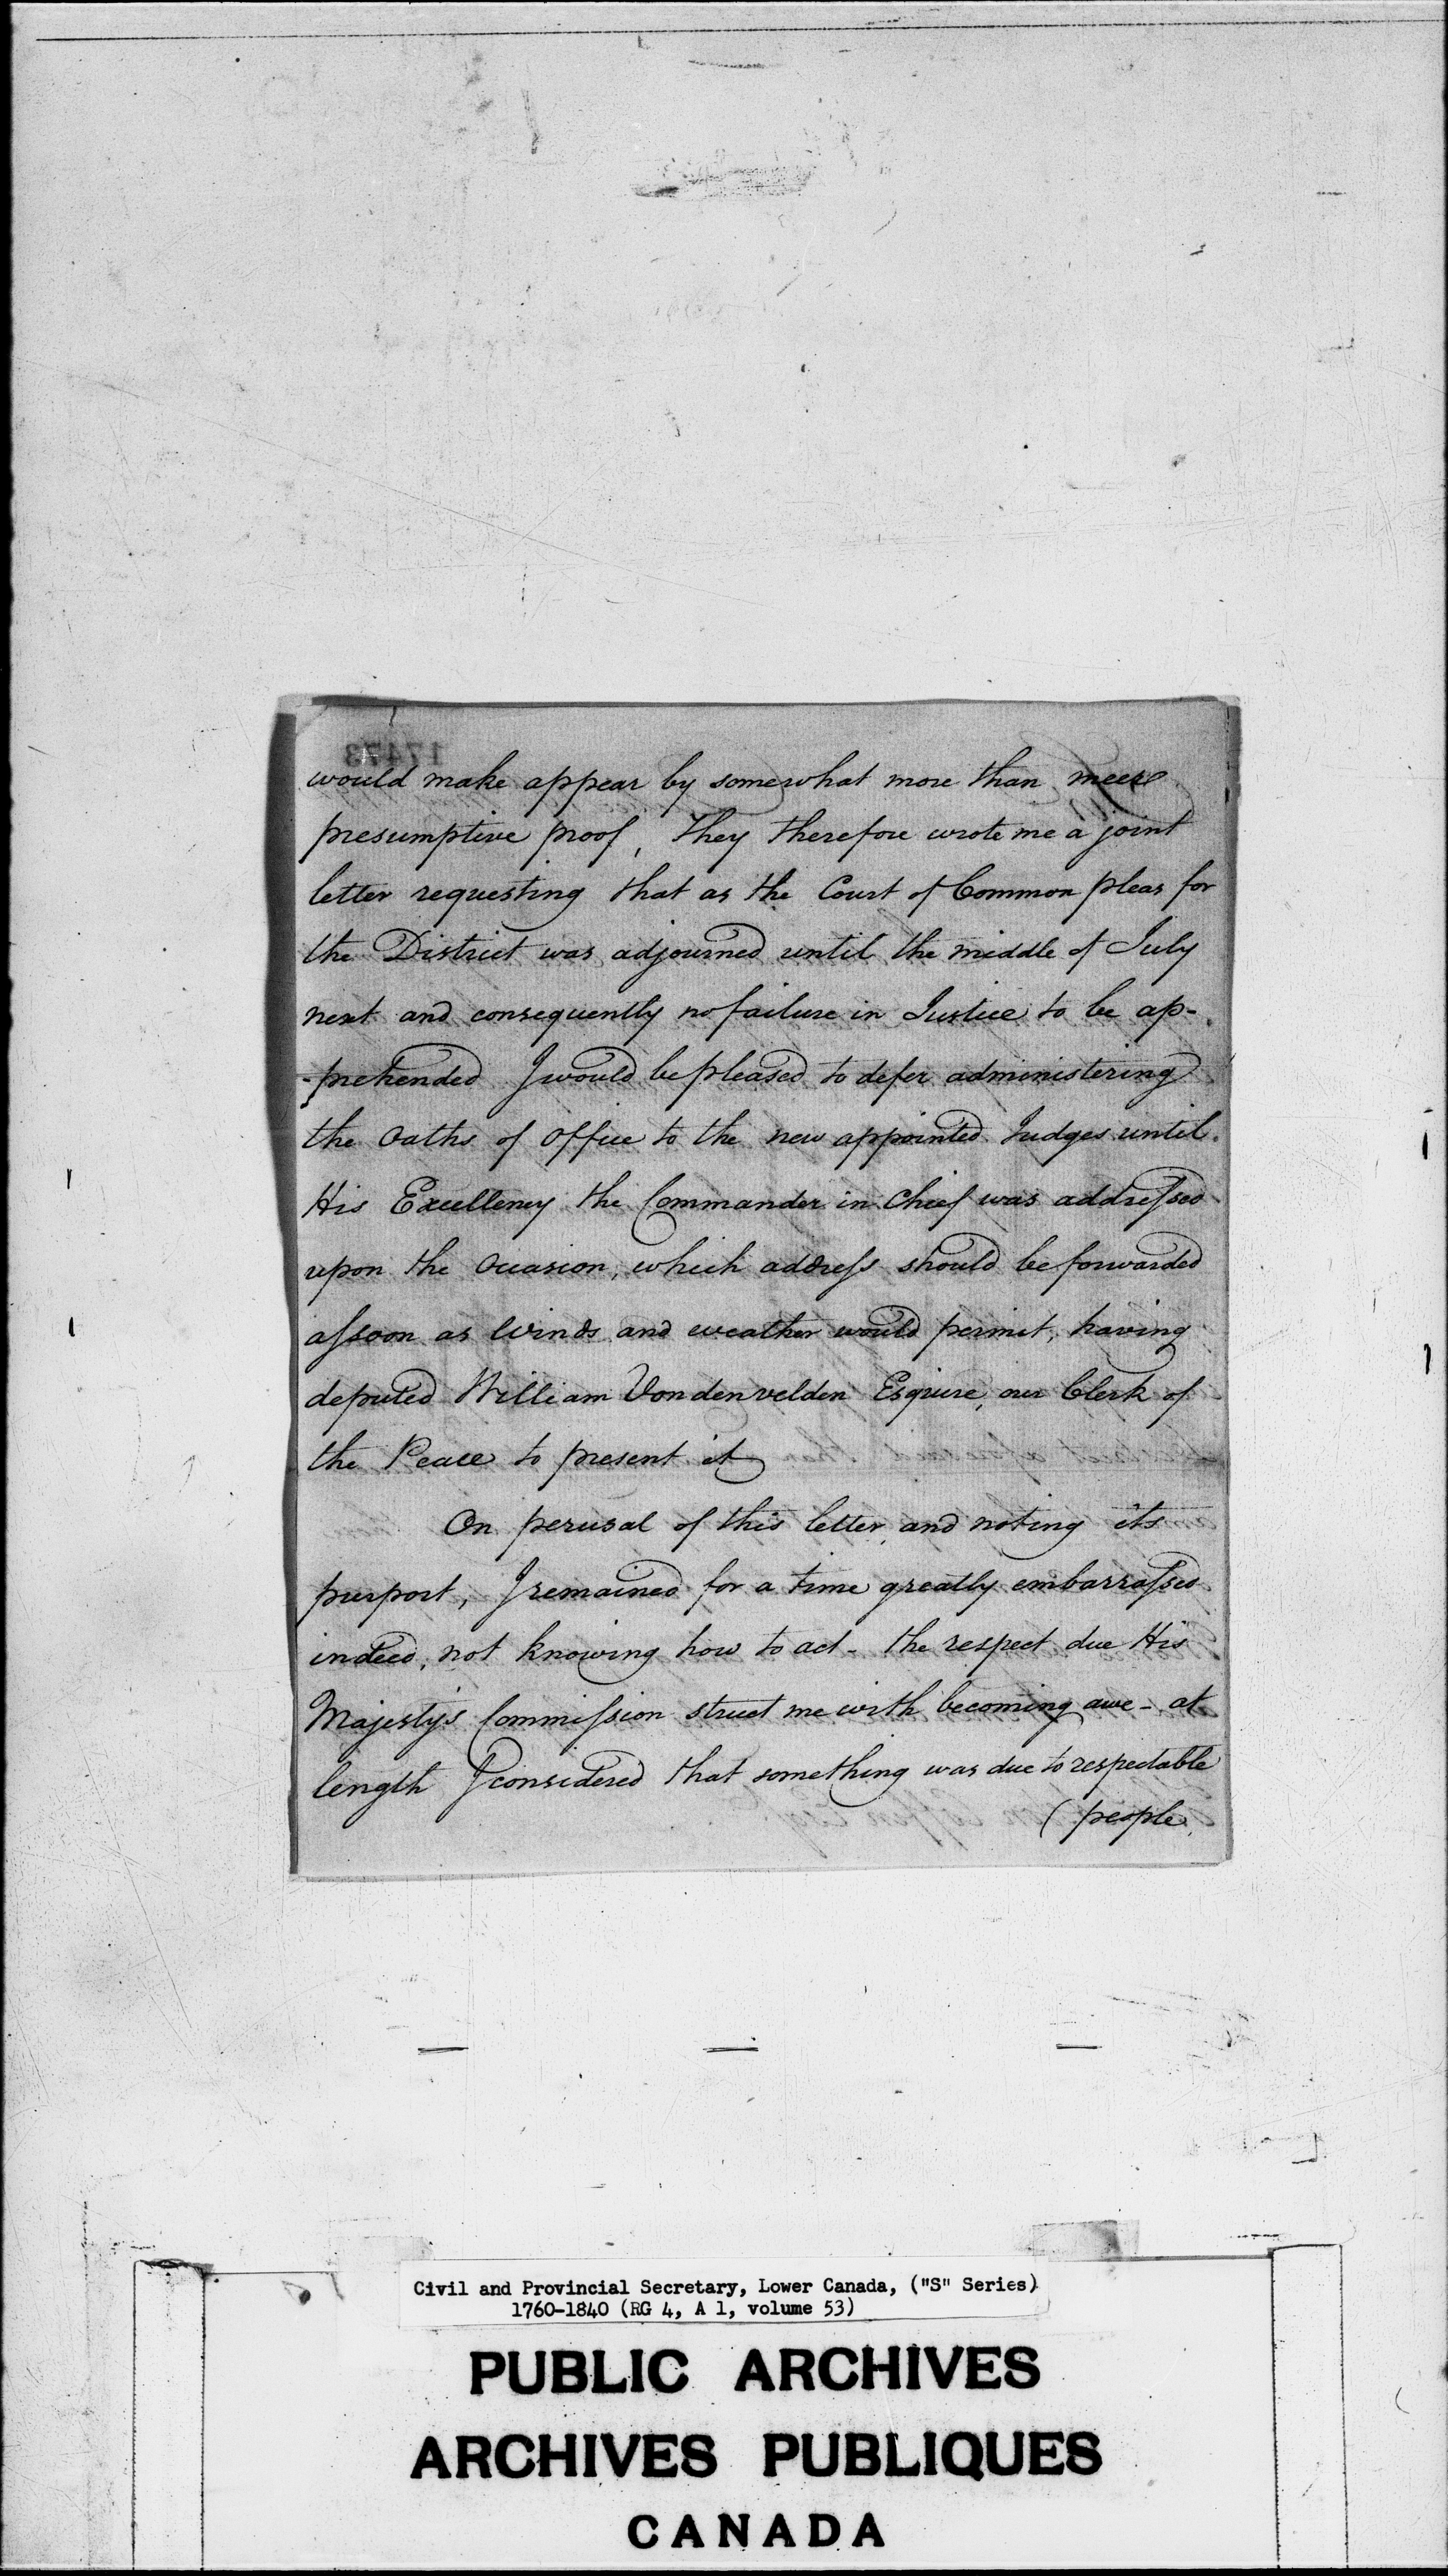 would make appear by somewhat more than meere
presumptive proof, they therefore wrote me a joint
letter requesting that as the Court of Common pleas for
the District was adjourned until the middle of July
next and consequently no failure in Justice to be ap-
-prehended I would be pleased to defer administering
the Oaths of Office to the new appointed Judges until
His Excellency the Commander in Chief was addreſsed
upon the Occasion, which addreſs should be forwarded
aſsoon as Winds and weather would permit, having
deputed William Vondenvelden Esquire, our Clerk of
the Peace to present it
On perusal of this letter, and noting its
purport, I remained for a time greatly embarraſsed
indeed, not knowing how to act - the respect due His
Majesty's Commiſsion struct me with becoming awe - at
length I considered that something was due to respectable
(people
Civil and Provincial Secretary, Lower Canada, ("S" Series)
1760-1840 (RG 4, A 1, volume 53)
PUBLIC ARCHIVES
ARCHIVES PUBLIQUES
CANADA